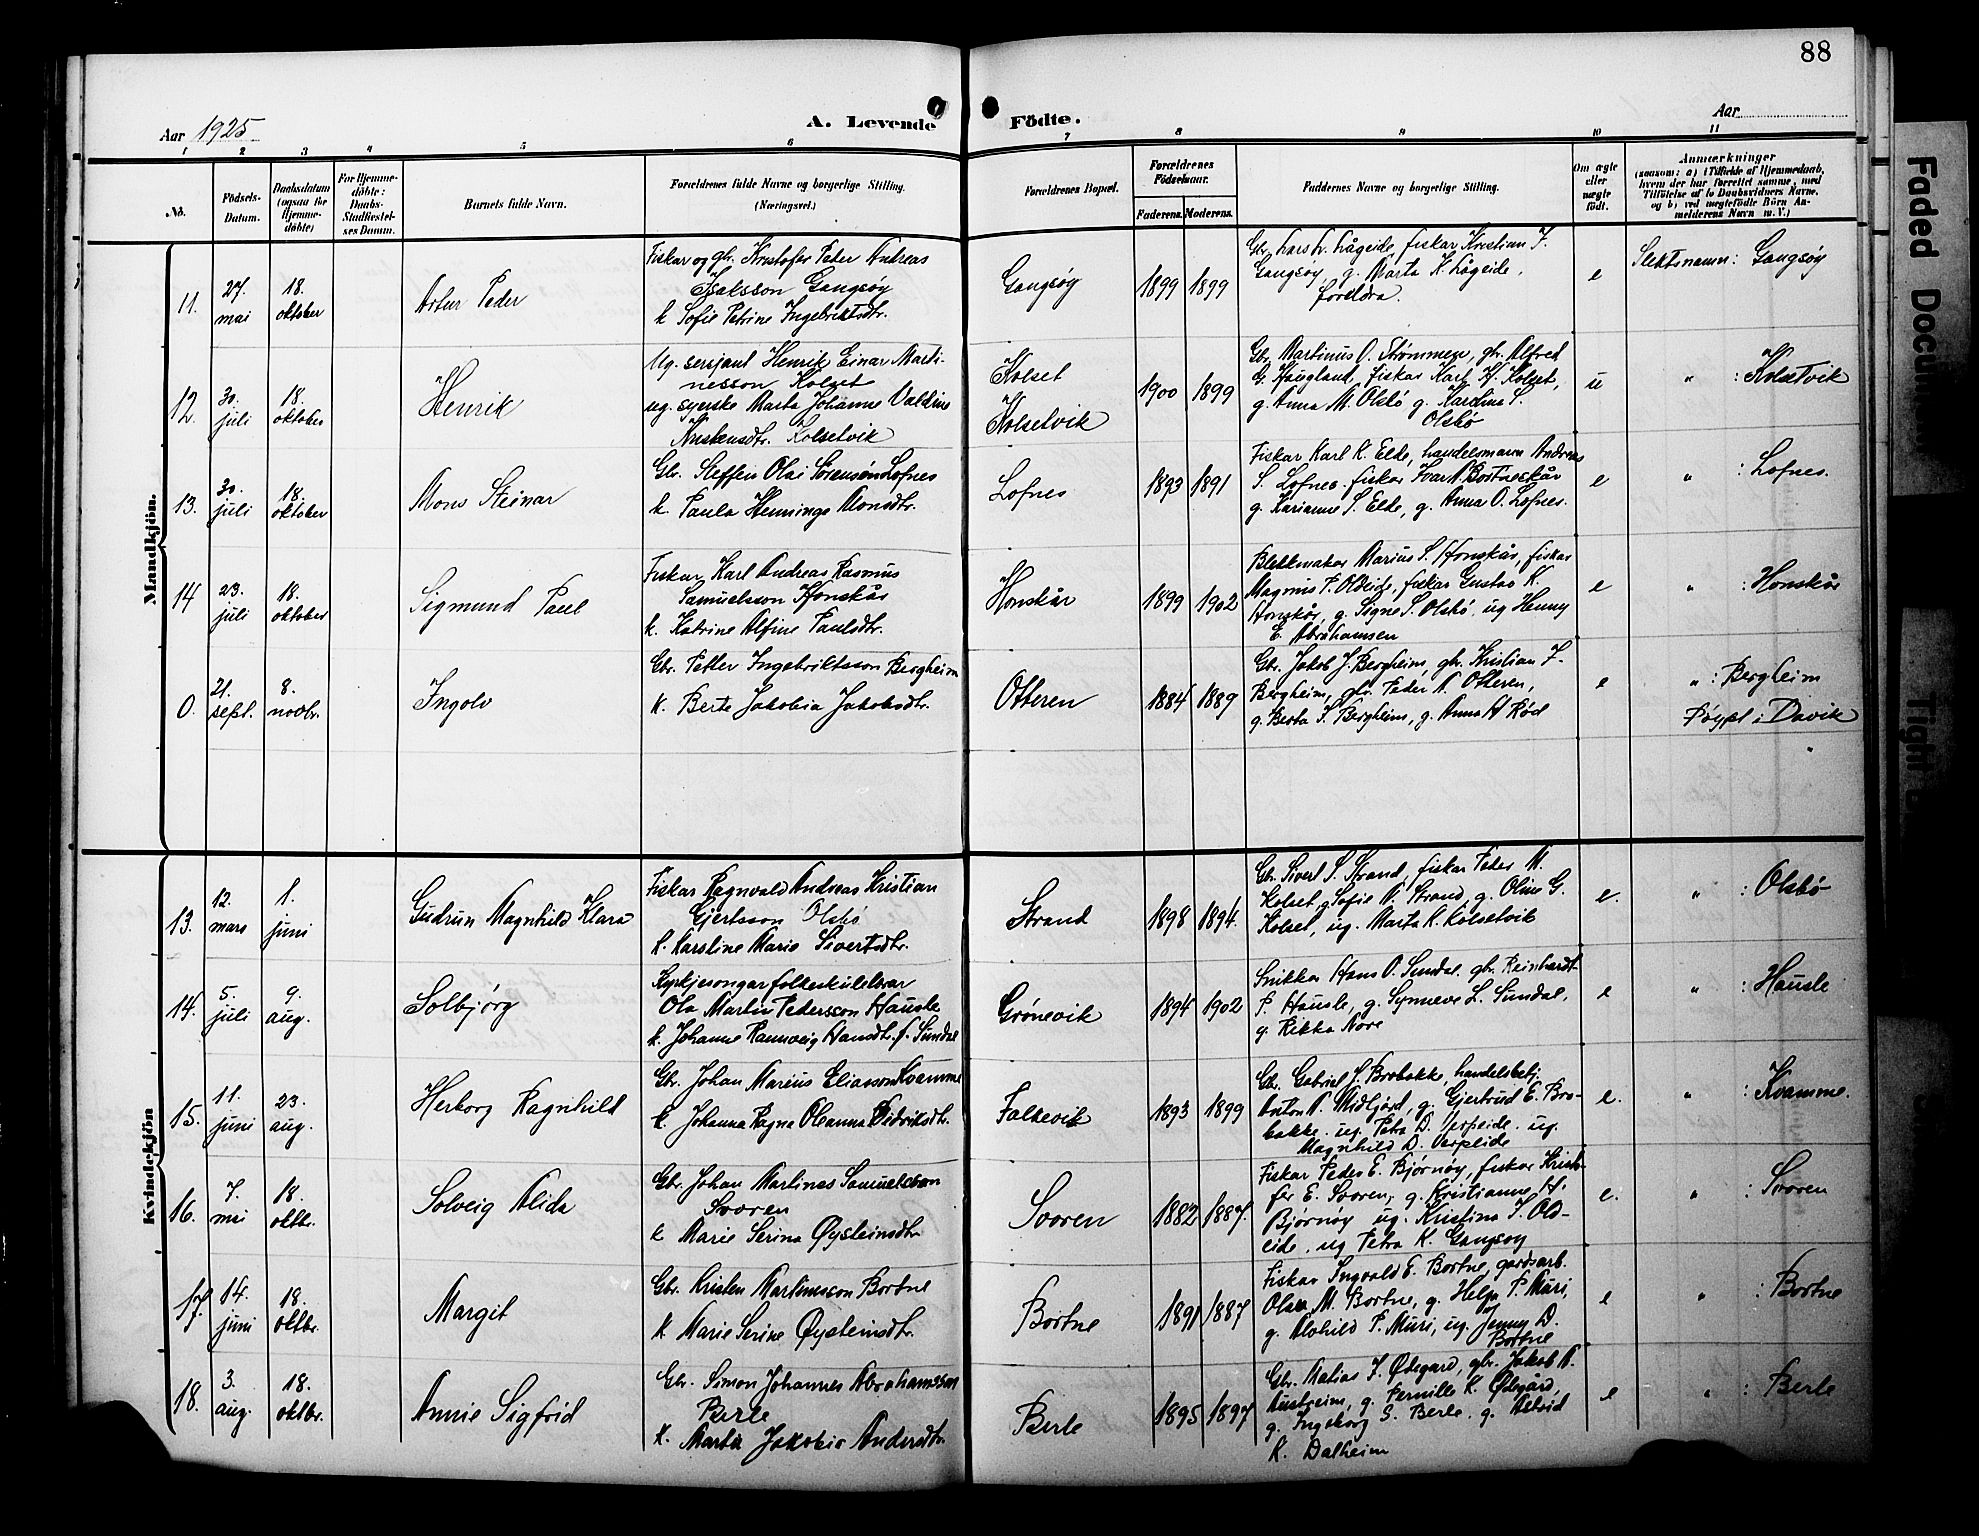 88
Aar 1925
A. Levende Födte.
Aar
1 2 3 4 5 6 7 8 9 10 11
No.
Födsels-Datum.
Daabsdatum (ogsaa for Hjemme-döbte)
For Hjemme-döbte: Daabs-Stadfæstel-ses Datum.
Barnets fulde Navn.
Forældrenes fulde Navne og borgerlige Stilling. (Næringsvei.)
Forældrenes Bopæl.
Forældrenes Födselsaar.
Faderens. Moderens.
Faddernes Navne og borgerlige Stilling.
Om ægte eller uægte født.
Anmærkninger
(saasom: a) i Tilfælde af Hjemmedaab,
hvem der har forrettet samme, med
Tilføielse af to Daabsvidners Navne,
og b) ved uægtefödte Börn An-
melderens Navn m. V.)
Mandkjön.
11. 27. mai
18. oktober
Artur Peder
Fiskar og gbr. Kristofer Peter Andreas
Isaksson Gangsøy
k Sofie Petrine Ingebriktsdtr.
Gangsøy
1899 1899
Gbr. Lars L. Lågeide, fiskar Kristian J.
Gangsøy, g. Marta K. Lågeide,
foreldra.
e
Slektsnamn: Gangsøy
12. 30. juli
18. oktober
Henrik
Ug. sersjant Henrik Einar Marti-
nesson Kolset
ug. syerske Marta Johanne Valdine
Kristensdtr. Kolsetvik
Kolset
Kolsetvik
1900 1899
Gbr. Martinus O. Strømmen, gbr. Alfred
G. Haugland, fiskar Karl H. Kolset,
g. Anna M. Olsbø g. Kardina S.
Olsbø
u
" : Kolsetvik
13. 30. juli
18. oktober
Mons Steinar
Gbr. Steffen Olai Sørensøn Lofnes
k. Paula Hennings Monsdtr.
Lofnes
1893 1891
Fiskar Karl K. Elde, handelsmann Andreas
S. Lofnes. fiskar Ivar A. Bortneskår
g. Karianne S. Elde, g. Anna O. Lofnes.
e
" : Lofnes.
14 23. juli
18. oktober
Sigmund Paul
Fiskar Karl Andreas Rasmus
Samuelsson Honskår
k. Katrine Alfine Paulsdtr.
Honskår
1899 1902
Blekkmakar Marius S. Honskår, fiskar
Magnus P. Oldeide, fiskar Gustav K.
Honskår, g. Signe S. Olsbø, ug Henny
E. Abrahamsen
e
" : Honskår
0. 21. sept.
8. novbr.
Ingolv
Gbr. Petter Ingebriktsson Bergheim
k. Berte Jakobia Jakobsdtr.
Otteren
1884 1889
Gbr. Jakob J. Bergheim, gbr. Kristian I.
Bergheim, gbr. Peder A. Otteren,
g. Berta I. Bergheim, g. Anna H Rød
e
" : Bergheim
Døypt i Davik
Kvindekjön
13. 12. mars
1. juni
Gudrun Magnhild Klara
Fiskar Ragnvald Andreas Kristian
Gjertsson Olsbø
k. Karoline Marie Sivertsdtr.
Strand
1898 1894.
Gbr. Sivert S. Strand, fiskar Peder M.
Kolset, g Sofie A. Strand, g. Oline G.
Kolset, ug. Marta K. Kolsetvik
e.
" : Olsbø
14. 5. juli
9. aug.
Solbjørg
Kyrkjesongar folkeskulelærar
Ola Martin Pedersson Hausle
k. Johanne Rannveig Hansdtr. f. Sundal
Grønevik
1894 1902
Snikkar Hans O. Sundal. gbr. Reinhardt
P. Hausle, g. Synneve L. Sundal,
g. Rikka Nore
e
" : Hausle
15. 11. juni
23. aug.
Herborg Ragnhild
Gbr. Johan Marius Eliasson Kvamme
k. Johanna Ragna Oleanna Didriksdtr.
Falkevik
1893 1899
Gbr. Gabriel J. Brobakke, handelsbetj.
Anton A. Midtjord, g. Gjertrud E. Bro-
bakke. ug. Petra D. Verpeide. ug.
Magnhild D. Verpeide
e.
" : Kvamme.
16. 7. mai
18. oktbr.
Solveig Alida
Gbr. Johan Martines Samuelsson
Svoren
k Marie Serina Øysteinsdtr
Svoren
1882 1887.
Fiskar Peder E. Bjørnøy, fiskar Kristo-
fer E. Svoren, g. Kristianne H.
Bjørnøy ug. Kristina S. Old-
eide, ug Petra K. Gangsøy
e.
" : Svoren
17. 14. juni
18. oktbr.
Margit
Gbr. Kristen Martinusson Bortne
k Marie Serine Øysteinsdtr.
Bortne
1891 1887
Fiskar Ingvald E. Bortne, gardsarb.
Olav M. Bortne, g. Helga P. Muri,
g. Alvhild P. Muri, ug. Jenny D.
Bortne
e
" : Bortne
18. 3. aug.
18. oktbr.
Annie Sigfrid
Gbr. Simon Johannes Abrahamsson
Berle
k. Marta Jakobia Andersdtr.
Berle
1895 1897
Gbr. Matias I. Ødegard, gbr. Jakob A.
Austreim, g. Pernille K. Ødegård,
g. Ingeborg S. Berle. g. Astrid
K. Dalheim
e
" : Berle
Faded Docum
Tight